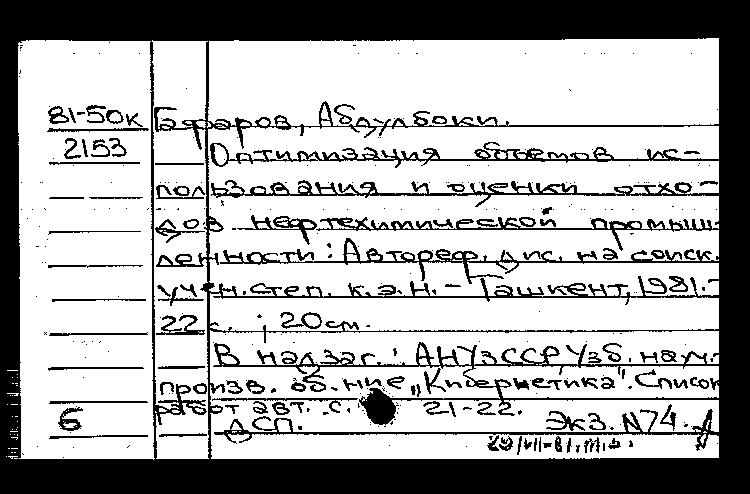 81-50к Гафаров, Абдулбоки.
2153 Оптимизация объемов ис-
пользования и оценки отхо-
дов нефтехимической промыш-
ленности : Автореф. дис. на соиск.
учен. степ. к.э.н. - Ташкент, 1981. -
22 с. ; 20 см.
В надзаг. : АН УзССР Узб. науч.-
произв. об-ние „Кибернетика". Список
работ авт. : с. 21-22.
Б ДСП. Экз. N74.